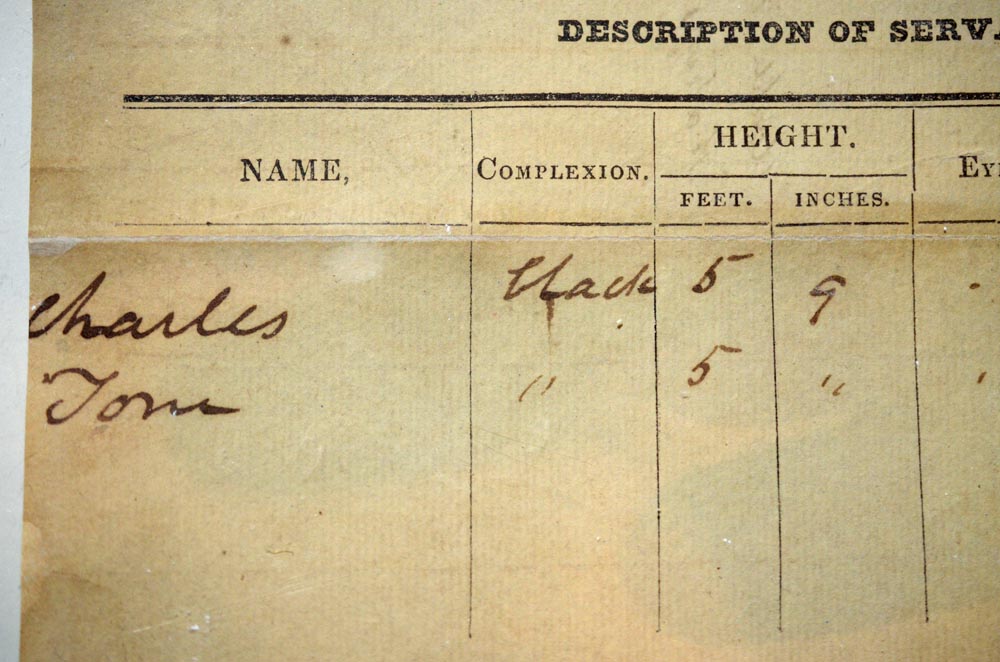 DESCRIPTION OF SERVA
NAME, COMPLEXION. HEIGHT. EYE
FEET. INCHES.
Charles black 5 9
Tom " 5 "